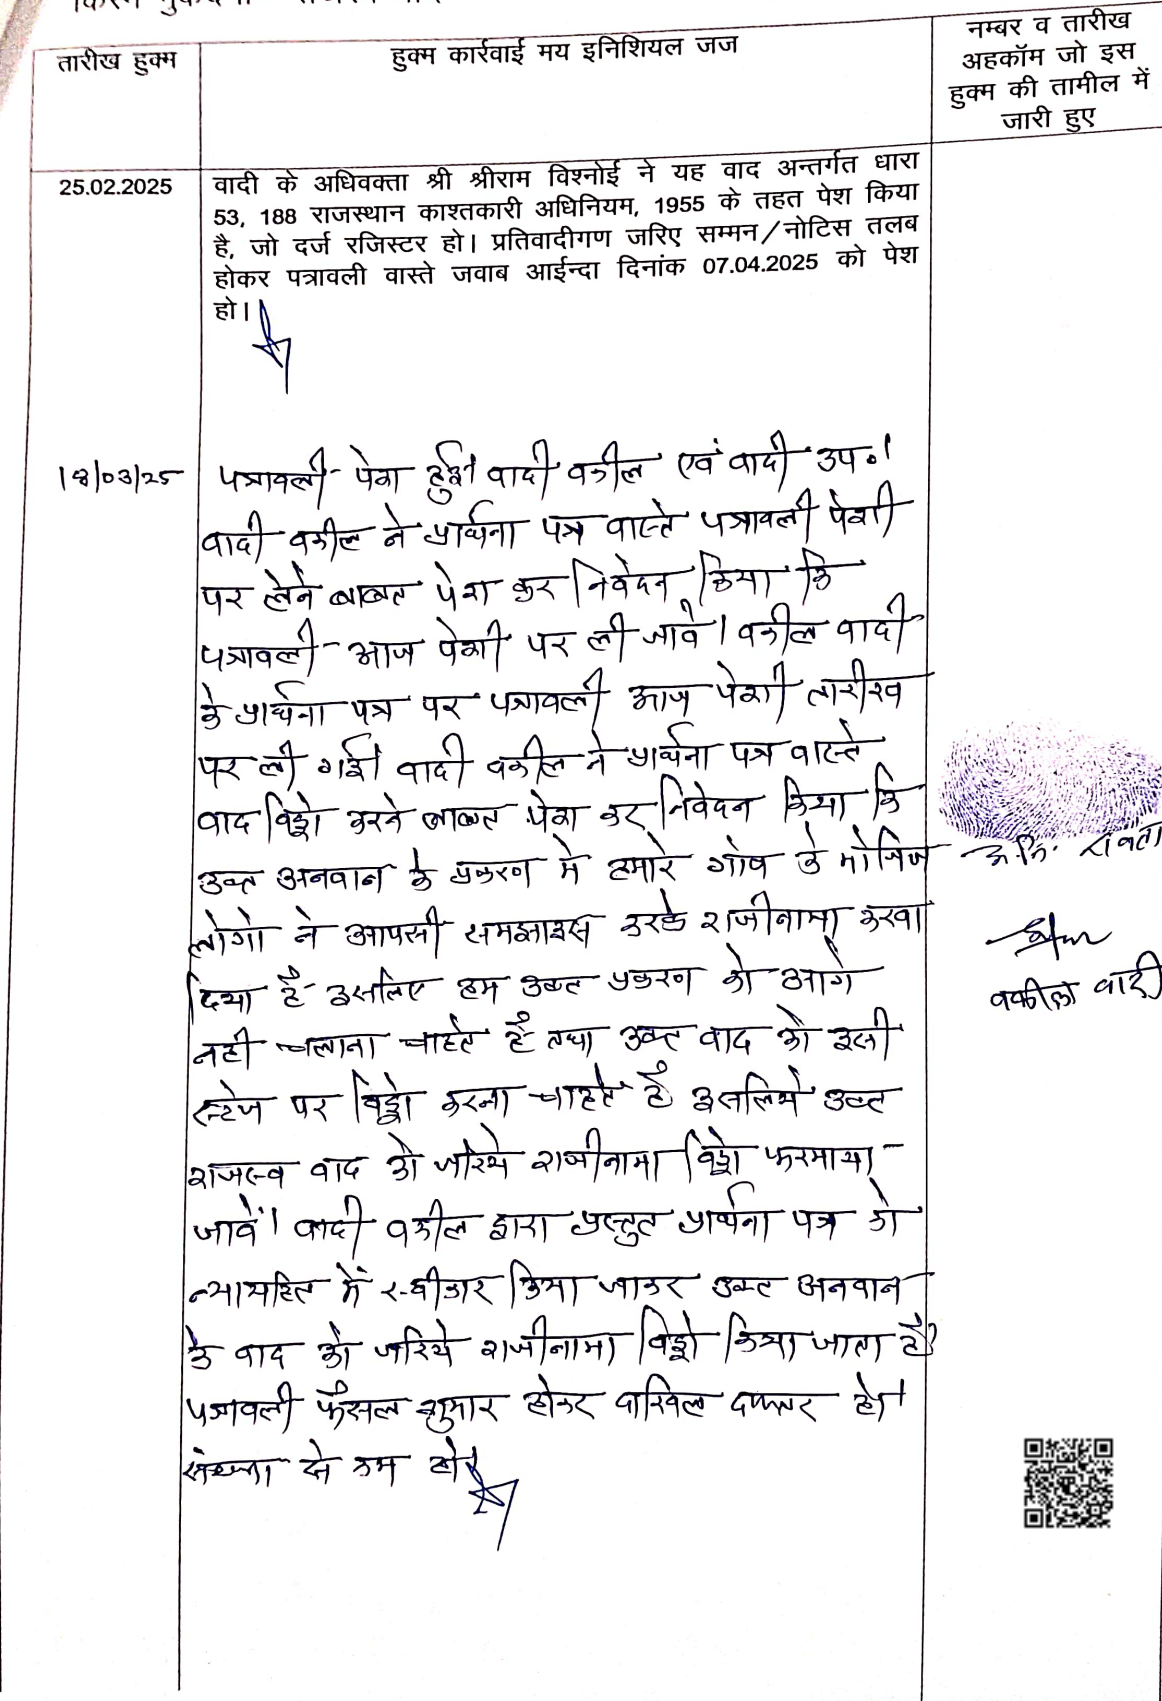 तारीख हुक्म
हुक्म कार्रवाई मय इनिशियल जज
नम्बर व तारीख
अहकॉम जो इस
हुक्म की तामील में
जारी हुए
25.02.2025
वादी के अधिवक्ता श्री श्रीराम विश्नोई ने यह वाद अन्तर्गत धारा
53, 188 राजस्थान काश्तकारी अधिनियम, 1955 के तहत पेश किया
है, जो दर्ज रजिस्टर हो। प्रतिवादीगण जरिए सम्मन/नोटिस तलब
होकर पत्रावली वास्ते जवाब आईन्दा दिनांक 07.04.2025 को पेश
हो।
18/03/25
पत्रावली पेश हुई। वादी वकील एवं वादी उप०।
वादी वकील ने प्रार्थना पत्र वास्ते पत्रावली पेशी
पर लेने बाबत पेश कर निवेदन किया कि
पत्रावली आज पेशी पर ली जावे। वकील वादी
के प्रार्थना पत्र पर पत्रावली आज पेशी तारीख
पर ली गई। वादी वकील ने प्रार्थना पत्र वास्ते
वाद विड्रो करने बाबत पेश कर निवेदन किया कि
उक्त अनवान के प्रकरण मे हमारे गांव के मौजिज
लोगो ने आपसी समझाइस करके राजीनामा करवा
दिया है इसलिए हम उक्त प्रकरण को आगे
नही चलाना चाहते है तथा उक्त वाद को इसी
स्टेज पर विड्रो करना चाहते है इसलिये उक्त
राजस्व वाद को जरिये राजीनामा विड्रो फरमाया
जावें। वादी वकील द्वारा प्रस्तुत प्रार्थना पत्र को
न्यायहित में स्वीकार किया जाकर उक्त अनवान
के वाद को जरिये राजीनामा विड्रो किया जाता है
पत्रावली फैसल शुमार होकर दाखिल दफ्तर हो।
संख्या से कम हो।
वकील वादी